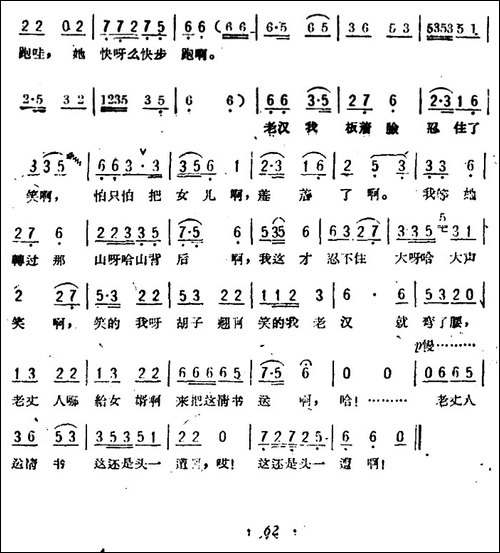 2 2 0 2 | 7 7 2 7 5 | 6 6 ( 6 6 | 6·5 6 5 | 3 6 5 3 | 5353 5 1 |
跑哇， 她 快呀么快步 跑啊。
2·5 3 2 | 1235 3 5 | 6 6 ) | 6 6 3·5 | 2 7 6 | 2·3 1 6 |
老汉 我 板着 脸 忍 住了
3 3 5 | 6 6 3·3 | 3 5 6 1 | 2·3 1 6 | 2 5 3 | 3 3 6 |
笑啊， 怕只怕 把 女 儿 啊， 羞 落 了 啊。 我等她
2 7 6 | 2 2 3 2 3 | 7·5 6 | 5 35 6 | 6 3 2 7 | 3 3 5 5 3 1 |
转过 那 山呀哈山背 后 啊， 我这 才 忍不住 大呀哈 大声
2 2 7 | 5·3 2 2 | 5·3 2 2 | 1 1 2 3 | 6 · 6 | 5 3 2 0 |
笑 啊， 笑的 我呀 胡子 翘啊 笑的我 老 汉 就 弯了腰，
p慢………
1 3 2 2 | 1 3 2 2 | 6 6 6 6 5 | 7·5 6 | 0 0 | 0 6 6 5 |
老丈 人嘛 给女 婿啊 来把这情书 送 啊， 哈！……… 老丈人
3 6 5 3 | 3 5 3 5 1 | 2 2 0 | 7 2 7 2 5 | 6 6 0 ‖
送情 书 这还是头一 遭啊，哎！ 这还是头一 遭 啊！
· 62 ·